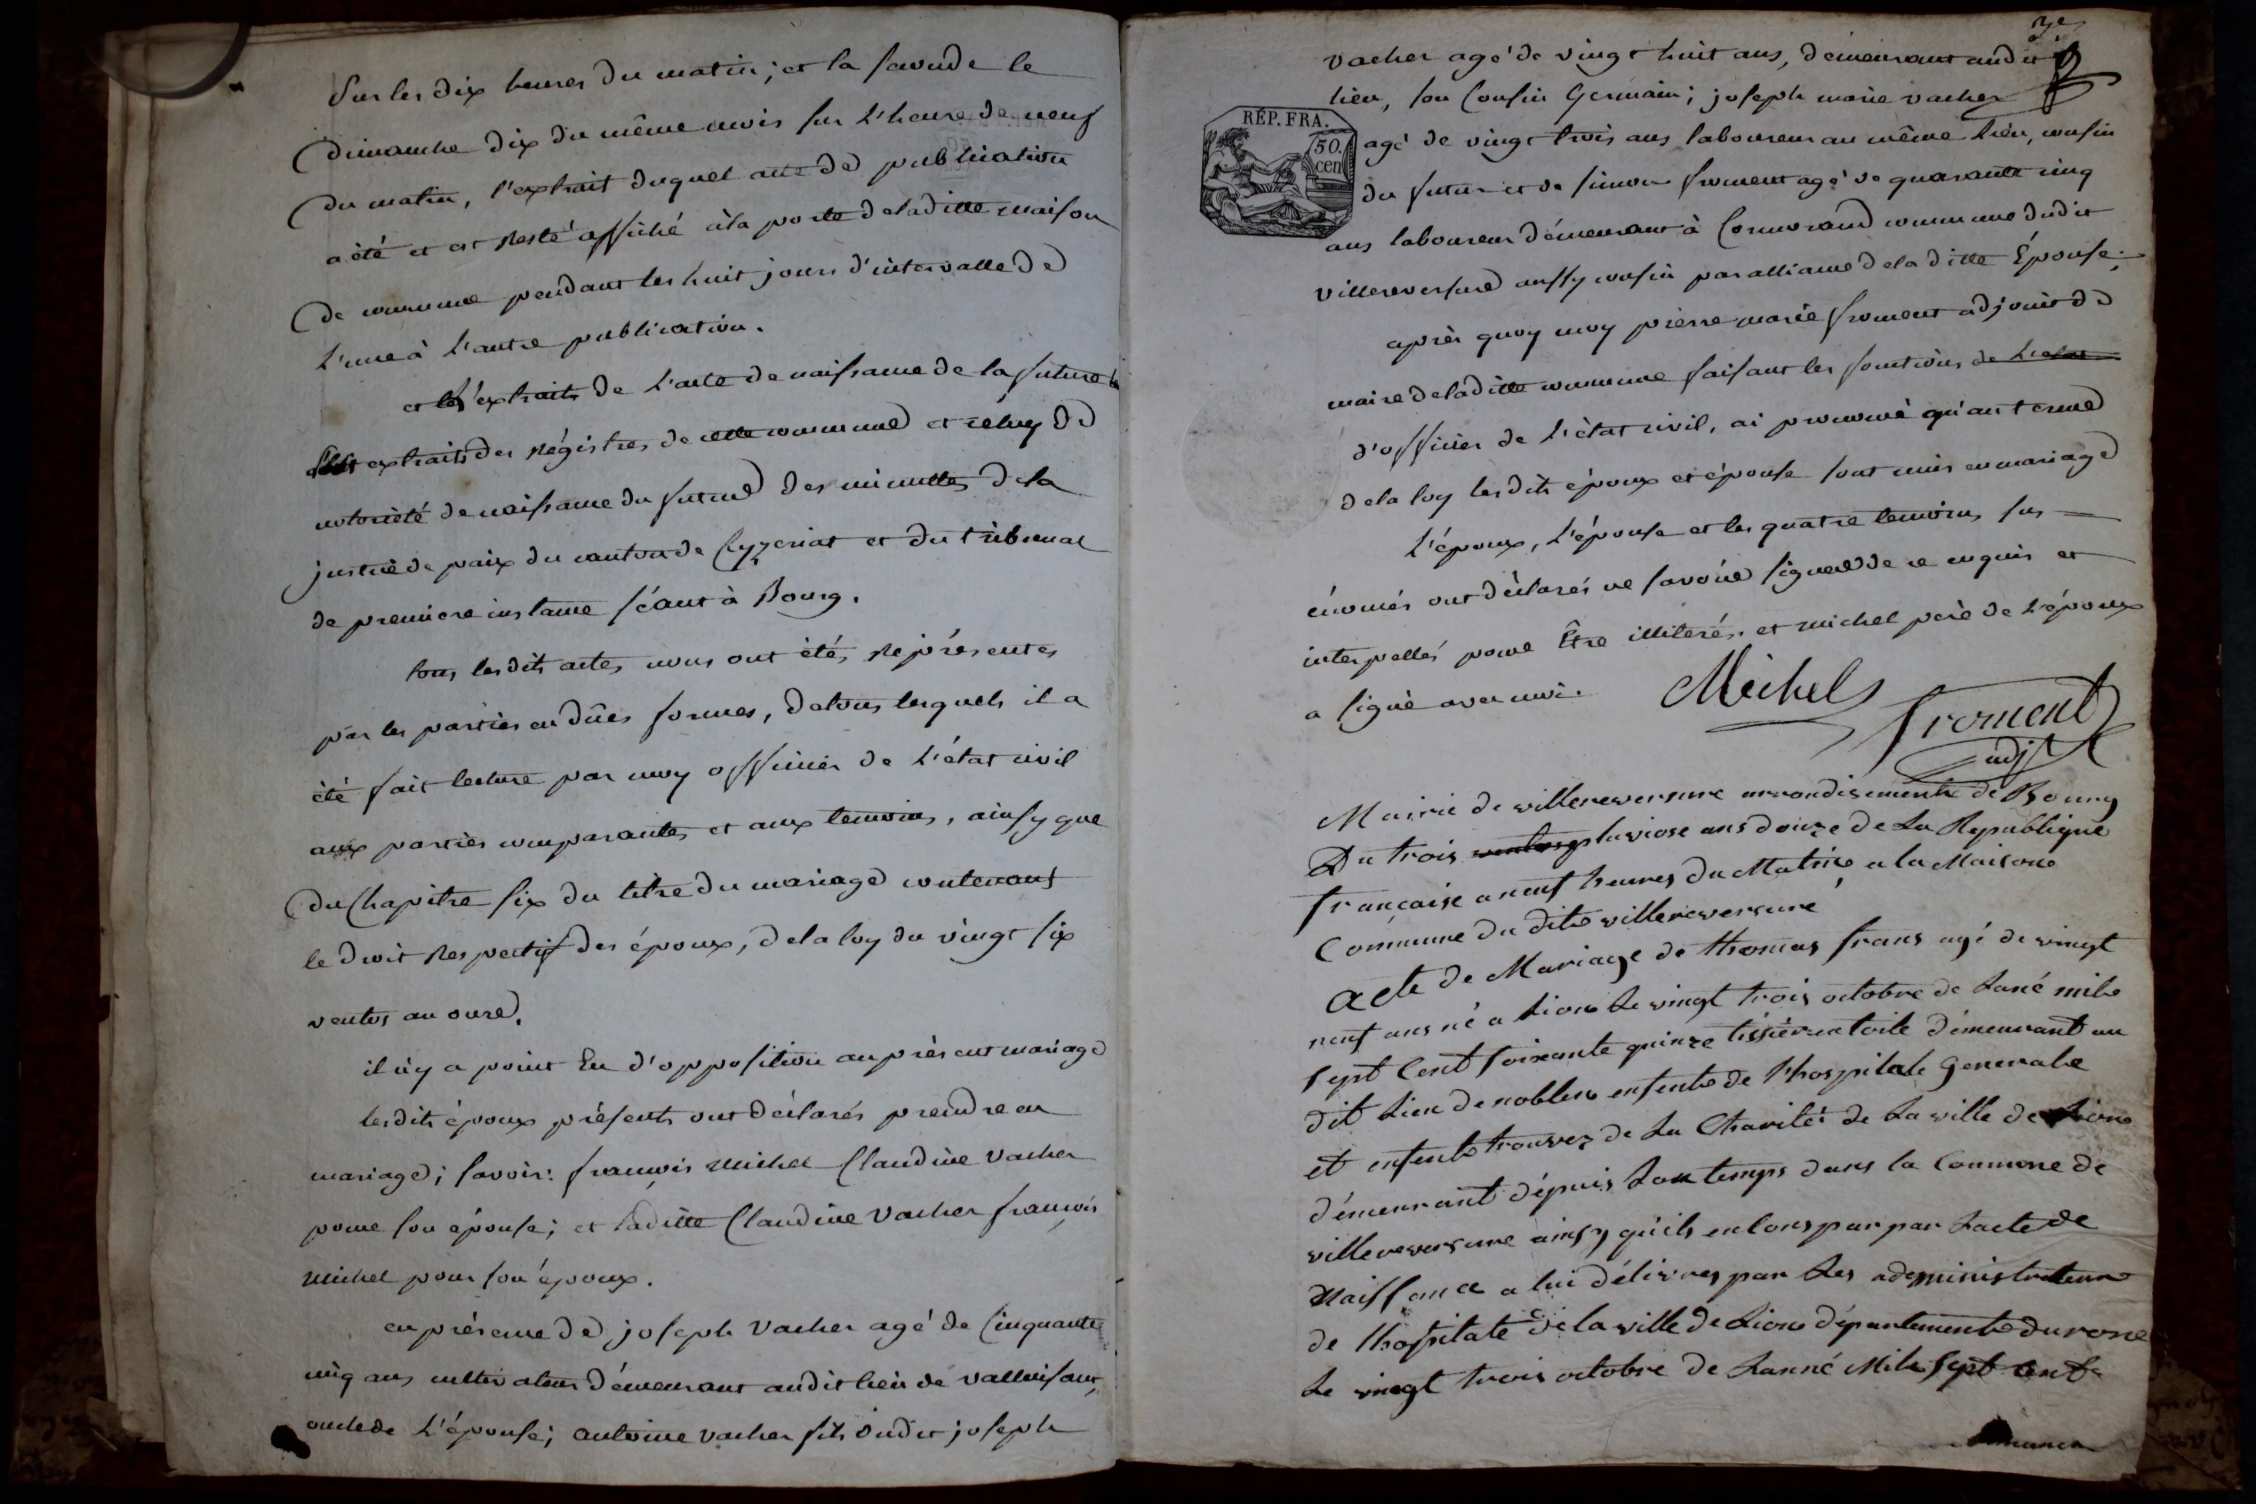 Sur les dix heures du matin; et la seconde le
Dimanche dix du même mois sur l'heure de neuf
du matin, l'extrait duquel acte de publication
a été et est resté affiché à la porte de la ditte maison
de commune pendant les huit jours d'intervalle de
l'une à l'autre publication.
et les extraits de l'acte de naissance de la future
extraits des régistres de cette commune et celuy de
notoriété de naissance du future des minuttes de la
justice de paix du canton de Ceyzeriat et du tribunal
de premiere instance séant à Bourg.
tous lesdits actes nous ont étés représentés
par les parties en dûes formes, de tous lesquels il a
été fait lecture par moy officier de l'état civil
aux parties comparantes et aux temoins, ainsy que
du Chapitre six du titre du mariage contenant
le droit respectif des époux, de la loy du vingt six
ventos an onze.
il n'y a point Eu d'opposition au présent mariage
lesdits époux présents ont déclarés prendre en
mariage; savoir: françois michel Claudine Vacher
pour son épouse; et laditte Claudine Vacher françois
michel pour son époux.
en présence de joseph Vacher agé de Cinquante
cinq ans cultivateur démeurant audit lieu de valluisant,
oncle de l'épouse; antoine vacher fils dudit joseph
3e
vacher agé de vingt huit ans, démeurant audit
lieu, son Cousin Germain; joseph marie vacher
RÉP. FRA.
50. cen
agé de vingt trois ans laboureur au même lieu, cousin
du futur et de simon froment agé de quarante cinq
ans laboureur démeurant à Cormorand commune dudit
villereversure aussy cousin par alliance de la ditte Épouse;
après quoy moy pierre marie froment adjoint de
maire de laditte commune faisant les fonctions de l'etat
d'officier de l'état civil, ai prononcé qu'au terme
de la loy lesdits époux et épouse sont unis en mariage
L'époux, l'épouse et les quatre temoins sus
énoncés ont déclarés ne savoir signer de ce enquis et
interpellés pour Être illiterés. et michel père de l'époux
a signé avec moi.
Michel
froment
adj
Mairie de villereversure arrondisemente de Bourg
Du trois pluviose ans douze de La Republique
française a neuf heures du Matin a la Maison
Commune du dite villereversure
Acte de Mariage de thomas frans agé de vingt
neuf ans né a Lion Le vingt trois octobre de Lané mile
sept Cent soixante quinze tissier en toile démeurant au
dit Lieu de noblens enfente de Lhospitale Generale
et enfente trouvez de La Charité de La ville de Lion
démeurant dépuis Lon temps dans la Commune de
villereversure ainsy quils en par par Lacte de
Naissance a lui délivres par Les administrateur
de Lhospitale de la ville de Lion départemente du rone
Le vingt trois octobre de Lanné Mile sept Cent